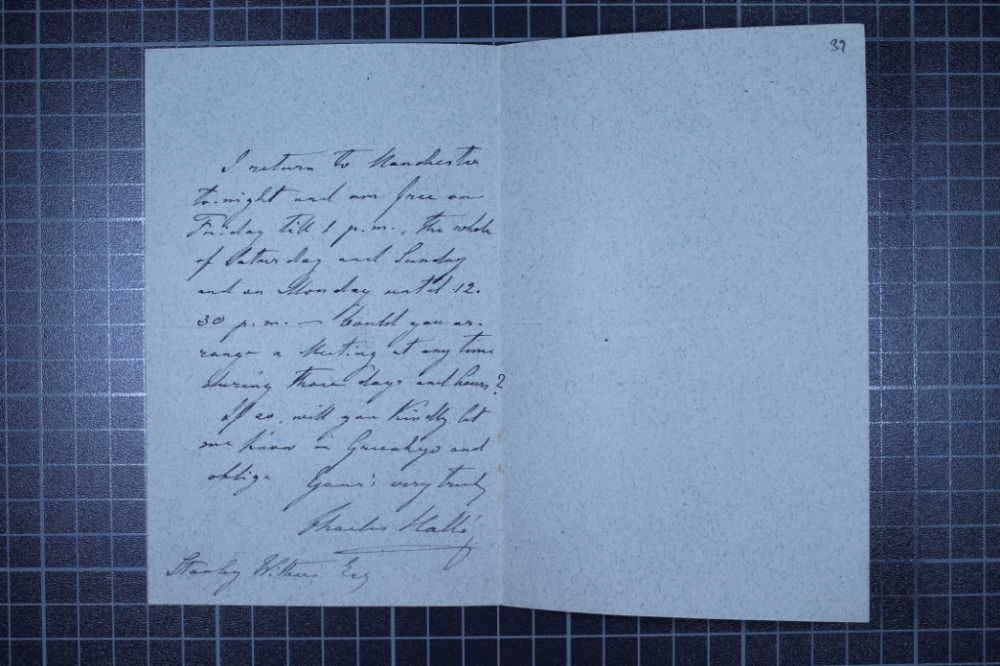 39
I return to Manchester
to-night and am free on
Friday till 1 p.m., the whole
of Saturday and Sunday
and on Monday until 12.
30 p.m. — Could you ar-
range a Meeting at any time
during those days and hours?
If so, will you Kindly let
me know in Greenheys and
oblige Yours very truly
Charles Hallé
Stanley Withers Esq